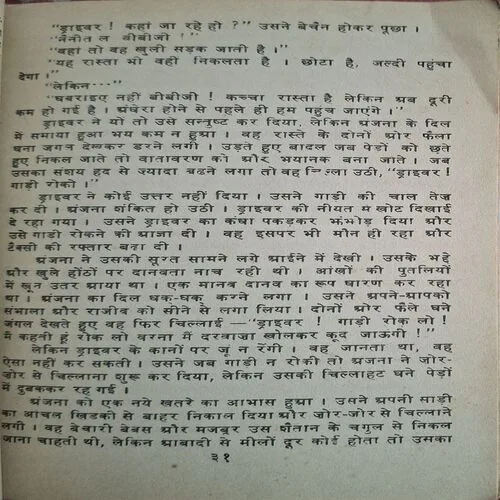 "ड्राइवर ! कहां जा रहे हो ?" उसने बेचैन होकर पूछा ।
"नैनीताल बीबीजी !"
"वहां तो वह खुली सड़क जाती है ।"
"यह रास्ता भी वहीं निकलता है । छोटा है, जल्दी पहुंचा
देगा ।"
"लेकिन····"
"घबराइए नहीं बीबीजी ! कच्चा रास्ता है लेकिन अब दूरी
कम हो गई है । अंधेरा होने से पहले ही हम पहुंच जाएंगे ।"
ड्राइवर ने यों तो उसे सन्तुष्ट कर दिया, लेकिन अंजना के दिल
में समाया हुआ भय कम न हुआ । वह रास्ते के दोनों ओर फैला
घना जंगल देखकर डरने लगी । उड़ते हुए बादल जब पेड़ों को छूते
हुए निकल जाते तो वातावरण को और भयानक बना जाते । जब
उसका संशय हद से ज्यादा बढ़ने लगा तो वह चिल्ला उठी, "ड्राइवर !
गाड़ी रोको ।"
ड्राइवर ने कोई उत्तर नहीं दिया । उसने गाड़ी की चाल तेज
कर दी । अंजना शंकित हो उठी । ड्राइवर की नीयत में खोट दिखाई
दे रहा गया । उसने ड्राइवर का कंधा पकड़कर झंझोड़ दिया और
उसे गाड़ी रोकने की आज्ञा दी । वह इसपर भी मौन ही रहा और
टैक्सी की रफ्तार बढ़ा दी ।
अंजना ने उसकी सूरत सामने लगे आईने में देखी । उसके भद्दे
और खुले होंठों पर दानवता नाच रही थी । आंखों की पुतलियों
में खून उतर आया था । एक मानव दानव का रूप धारण कर रहा
था । अंजना का दिल धक-धक करने लगा । उसने अपने-आपको
संभाला और राजीव को सीने से लगा लिया । दोनों ओर फैले घने
जंगल देखते हुए वह फिर चिल्लाई—"ड्राइवर ! गाड़ी रोक लो !
मैं कहती हूं रोक लो वरना मैं दरवाजा खोलकर कूद जाऊंगी !"
लेकिन ड्राइवर के कानों पर जूं न रेंगी । वह जानता था, वह
ऐसा नहीं कर सकती । उसने जब गाड़ी न रोकी तो अंजना ने ज़ोर-
ज़ोर से चिल्लाना शुरू कर दिया, लेकिन उसकी चिल्लाहट घने पेड़ों
में दुबककर रह गई ।
अंजना को एक नये खतरे का आभास हुआ । उसने अपनी साड़ी
का आंचल खिड़की से बाहर निकाल दिया और ज़ोर-ज़ोर से चिल्लाने
लगी । वह बेचारी बेबस और मजबूर उस शैतान के चंगुल से निकल
जाना चाहती थी, लेकिन आबादी से मीलों दूर कोई होता तो उसका
३१